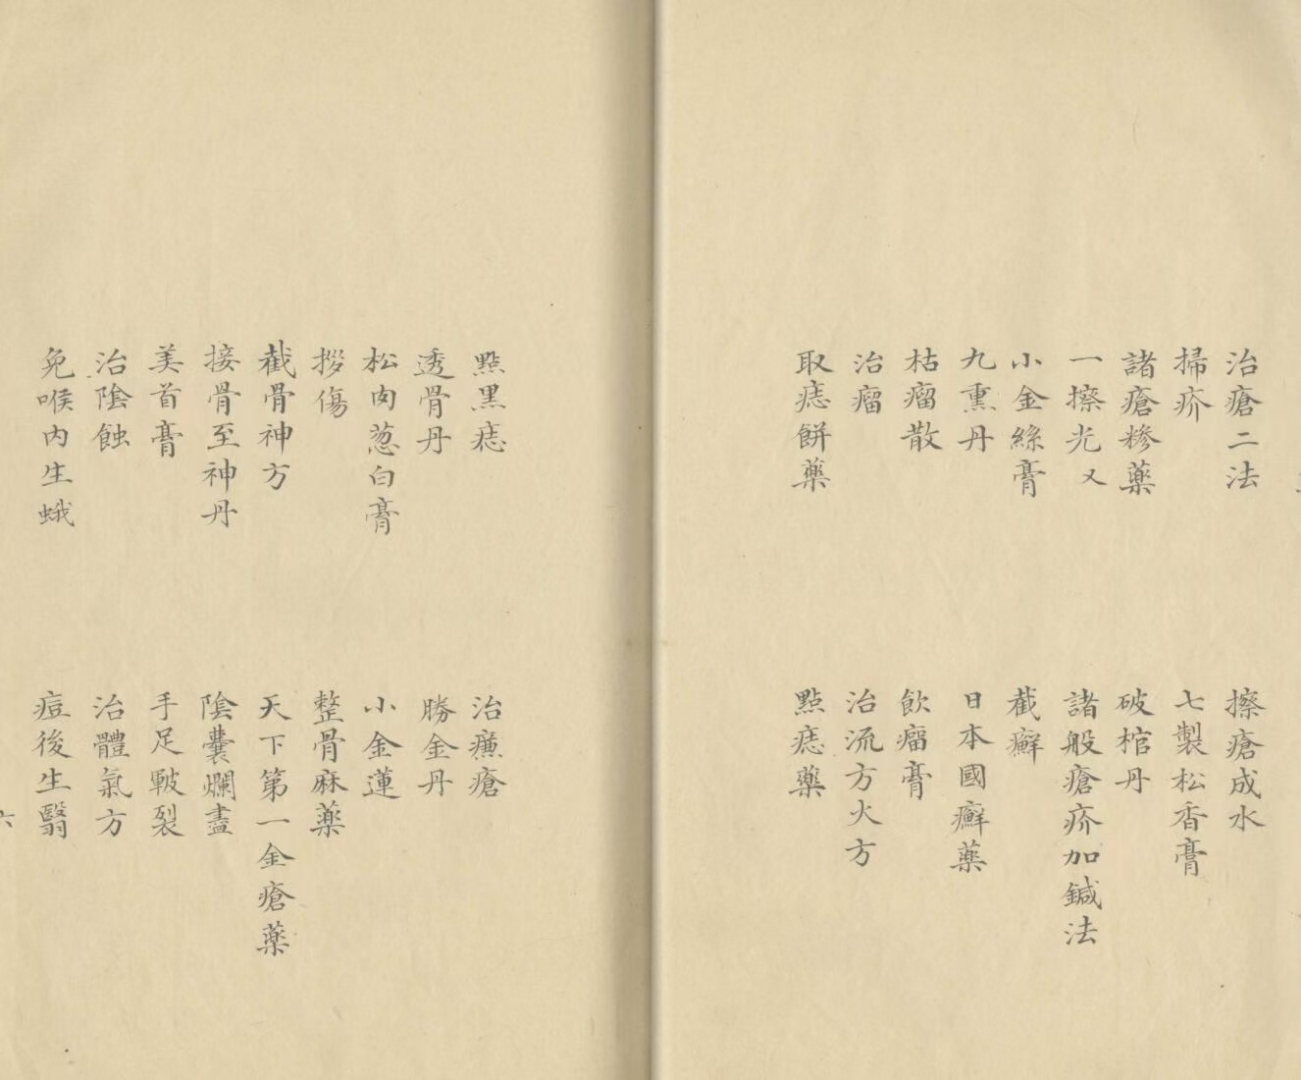 治瘡二法
擦瘡成水
掃疥
七製松香膏
諸瘡糝藥
破棺丹
一擦光又
諸般瘡疥加鍼法
小金絲膏
截癬
九熏丹
日本國癬藥
枯瘤散
飲瘤膏
治瘤
治流方火方
取痣餅藥
點痣藥
點黑痣
治蘪瘡
透骨丹
勝金丹
松肉葱白膏
小金蓮
拶傷
整骨麻藥
截骨神方
天下第一金瘡藥
接骨至神丹
陰囊爛盡
美首膏
手足皸裂
治陰蝕
治體氣方
免喉内生蛾
痘後生翳
六